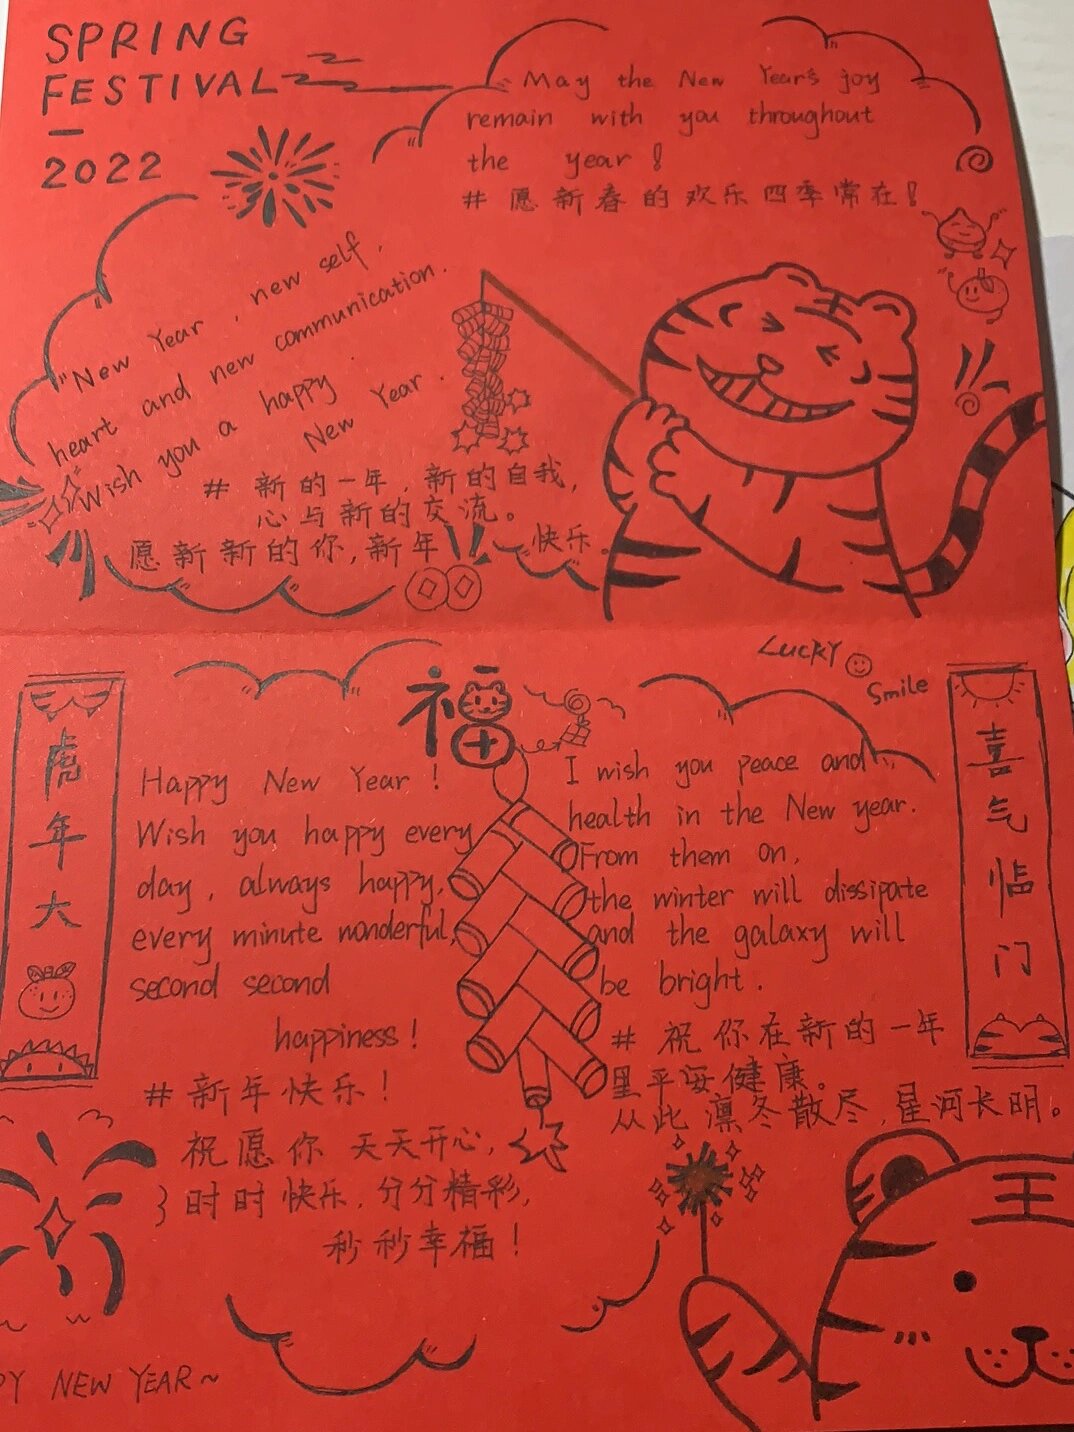 SPRING
FESTIVAL
2022
May the New Year's joy
remain with you throughout
the year!
# 愿新春的欢乐四季常在!
"New Year, new self,
heart and new communication.
Wish you a happy
New Year.
# 新的一年,新的自我,
心与新的交流。
愿新新的你,新年快乐.
LUCKY
Smile
福
虎年大
喜气临门
Happy New Year!
Wish you happy every
day, always happy,
every minute wonderful,
second second
happiness!
# 新年快乐!
祝愿你 天天开心,
时时快乐,分分精彩,
秒秒幸福!
I wish you peace and
health in the New year.
From them on,
the winter will dissipate
and the galaxy will
be bright.
# 祝你在新的一年
里平安健康。
从此凛冬散尽,星河长明。
王
PY NEW YEAR~